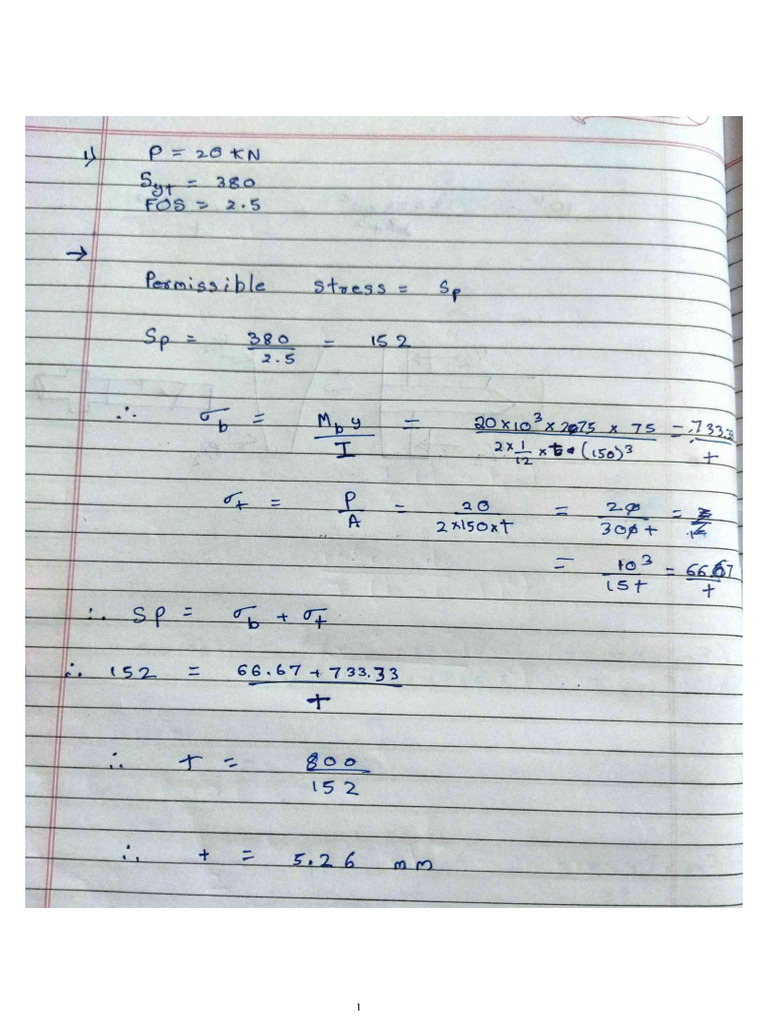 1) P = 20 KN
Syt = 380
FOS = 2.5
→
Permissible stress = Sp
Sp = 380/2.5 = 152
∴ σb = Mb y / I = 20×10³×275×75 / 2×1/12×t×(150)³ = 733.33/t
σt = P/A = 20/2×150×t = 20/300t =
= 10³/15t = 66.67/t
∴ SP = σb + σt
∴ 152 = 66.67 + 733.33 / t
∴ t = 800/152
∴ t = 5.26 mm
1